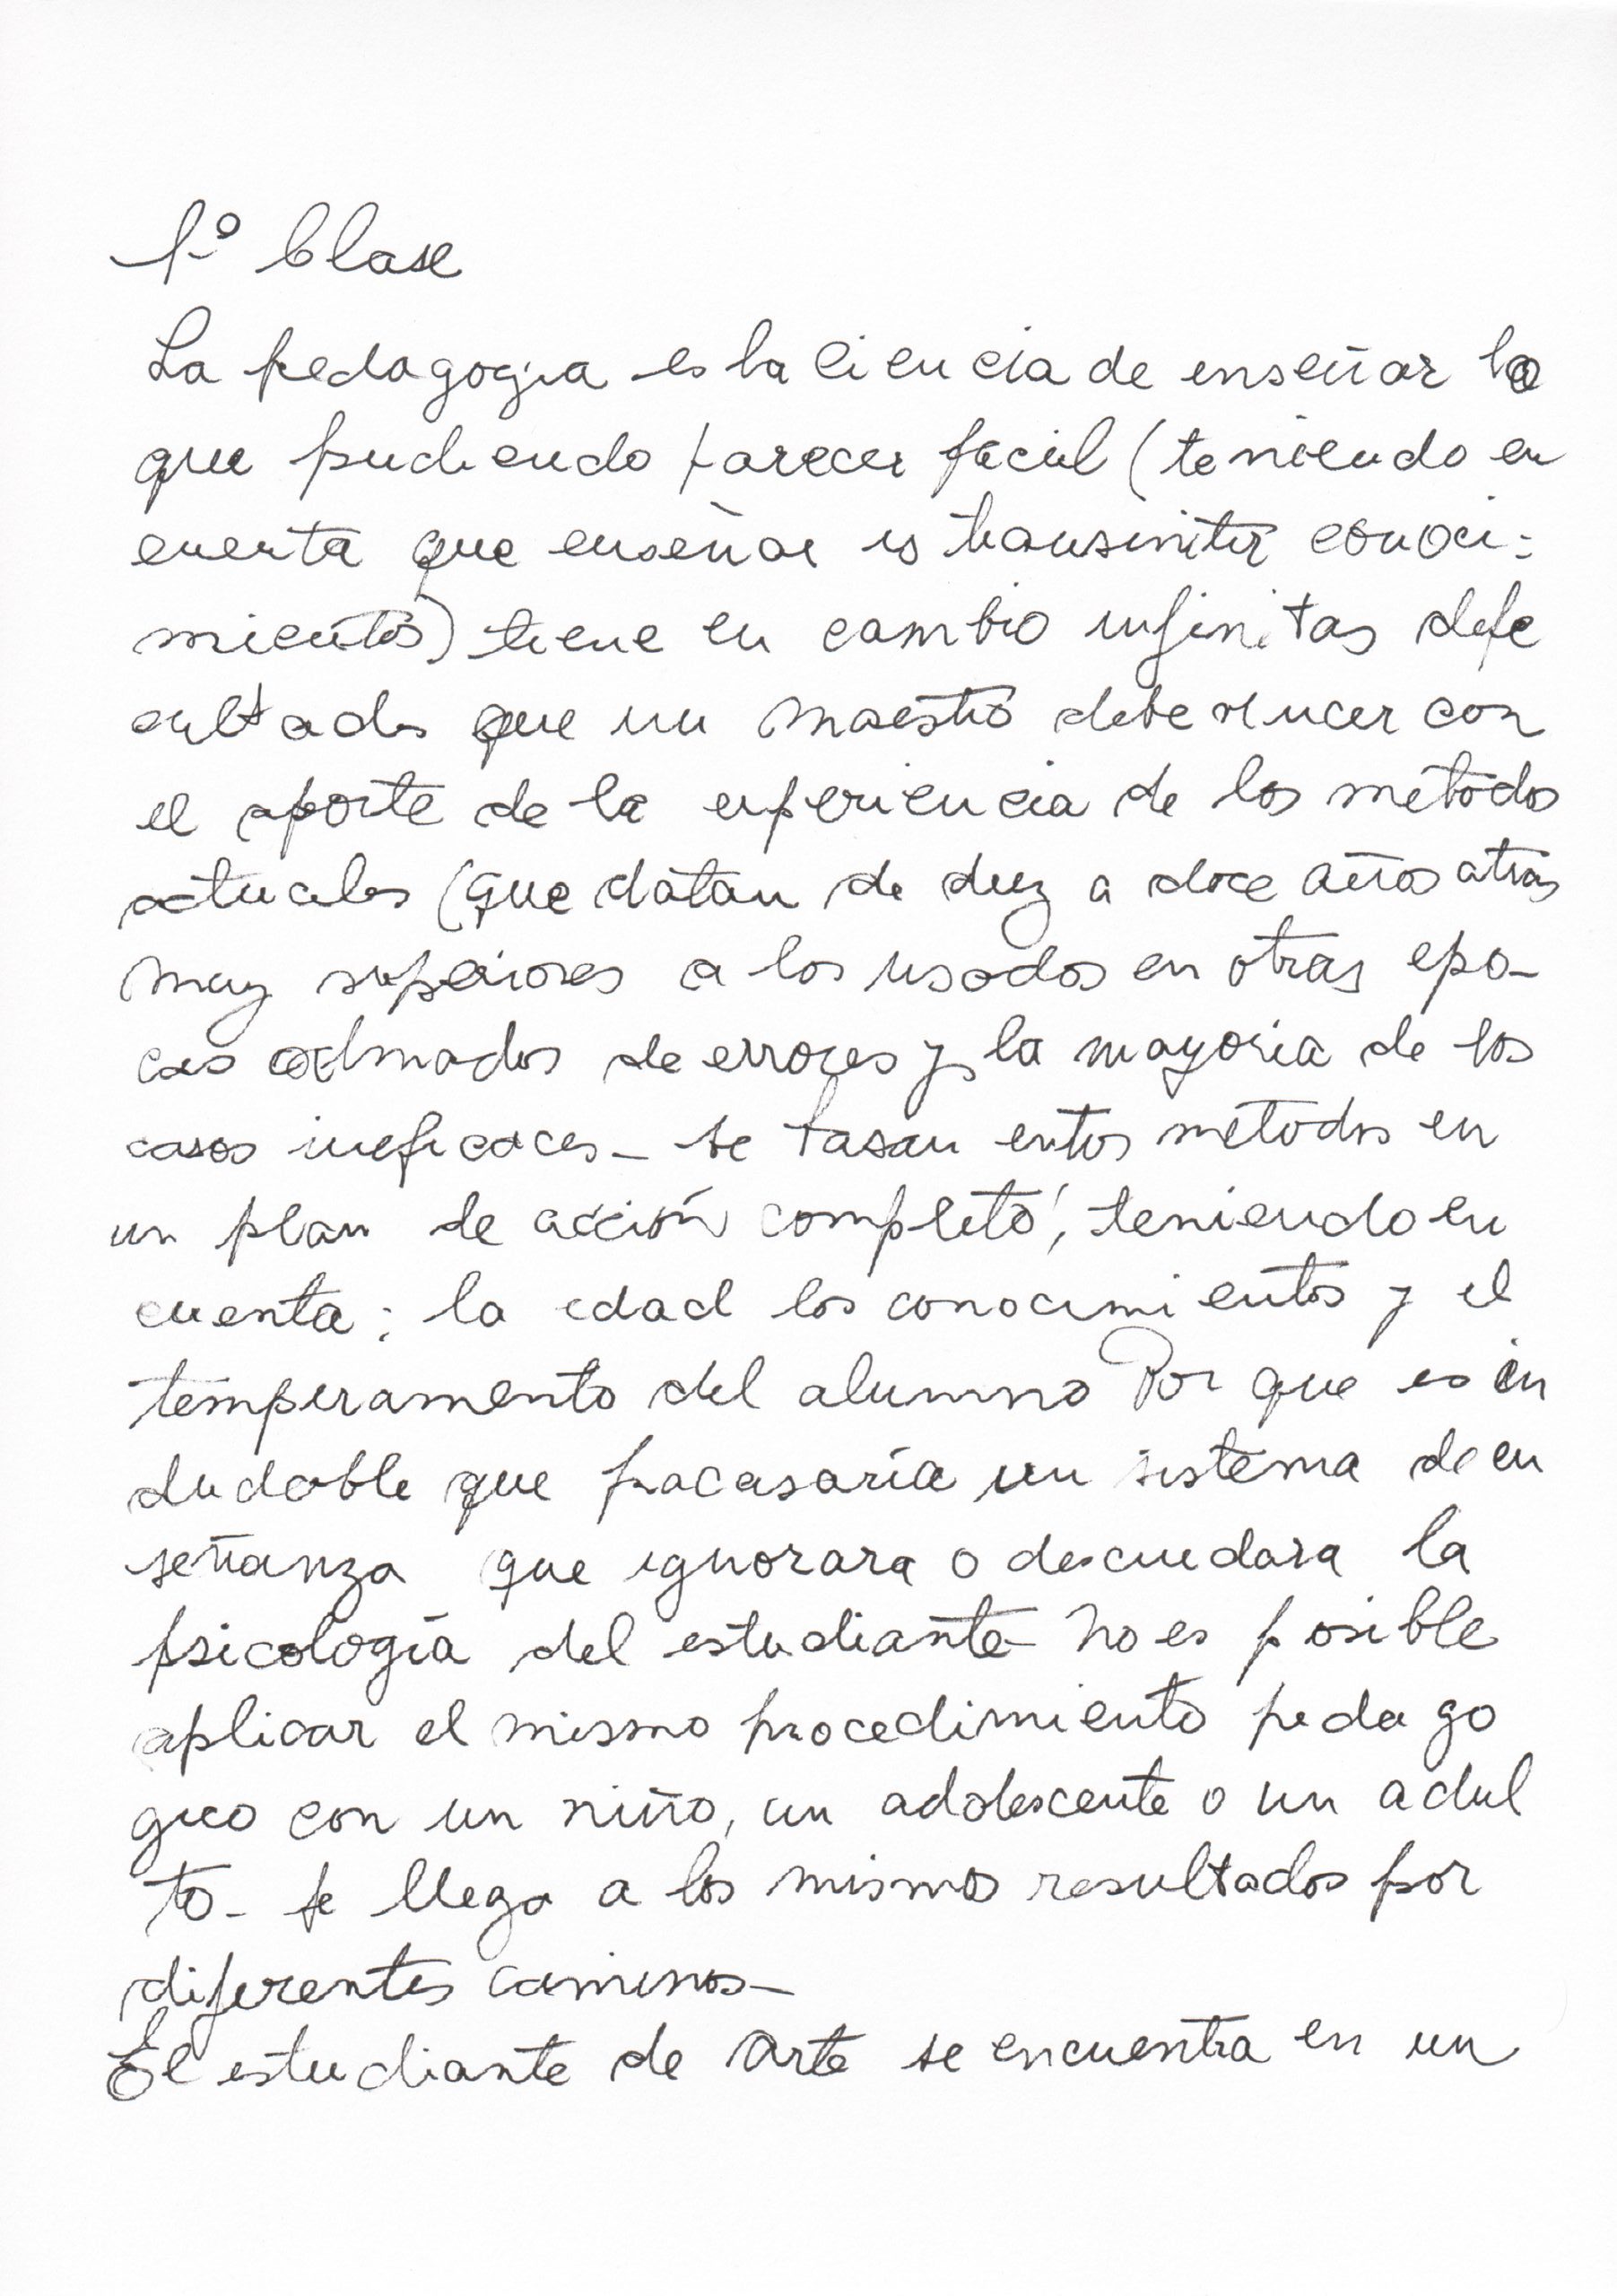 1º Clase
La pedagogia es la ciencia de enseñar lo
que pudiendo parecer facil (teniendo en
cuenta que enseñar es transmitir conoci-
mientos) tiene en cambio infinitas difi
cultades que un maestro debe vencer con
el aporte de la experiencia de los metodos
actuales (que datan de diez a doce años atras
muy superiores a los usados en otras epo-
cas colmados de errores y la mayoria de los
casos ineficaces- se basan estos metodos en
un plan de acción completo, teniendo en
cuenta: la edad los conocimientos y el
temperamento del alumno Por que es in
dudable que fracasaría un sistema de en
señanza que ignorara o descuidara la
psicología del estudiante- No es posible
aplicar el mismo procedimiento pedago
gico con un niño, un adolescente o un adul
to- se llega a los mismos resultados por
diferentes caminos-
El estudiante de Arte se encuentra en un